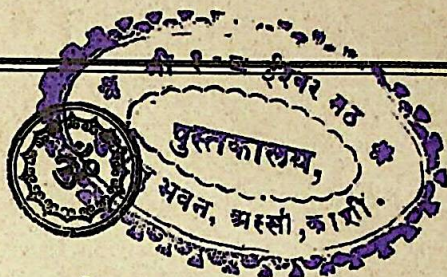 श्री १-८ ईश्वर मठ
पुस्तकालय,
भवन, अस्सी, काशी.